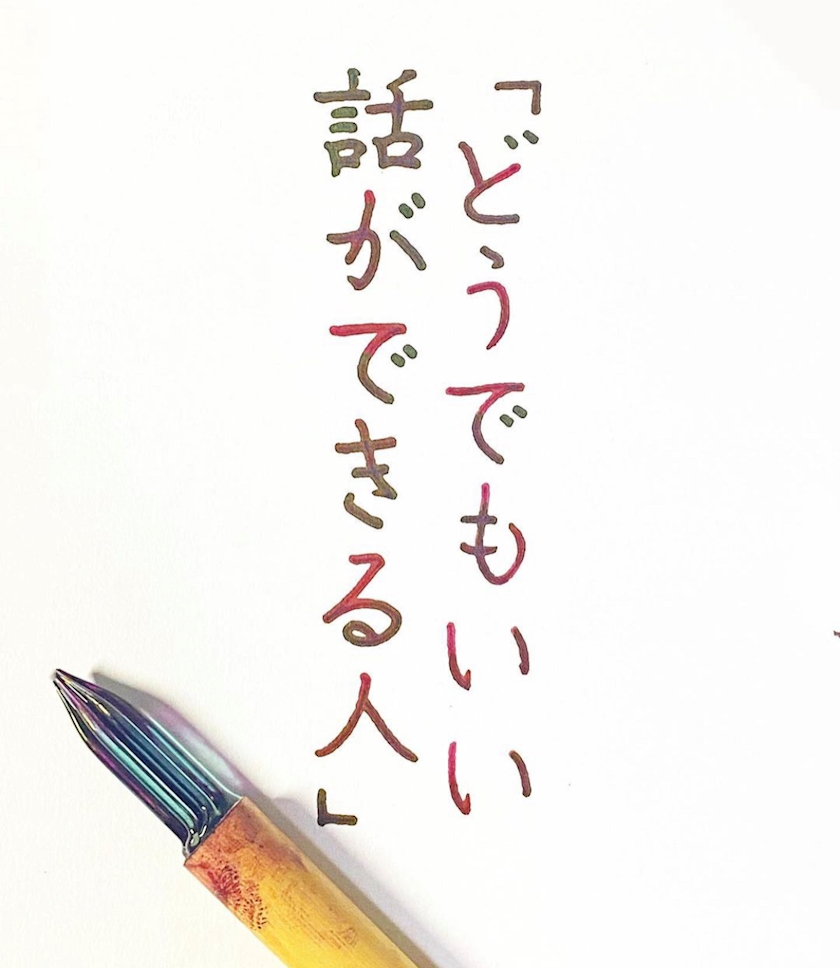 「どうでもいい
話ができる人」